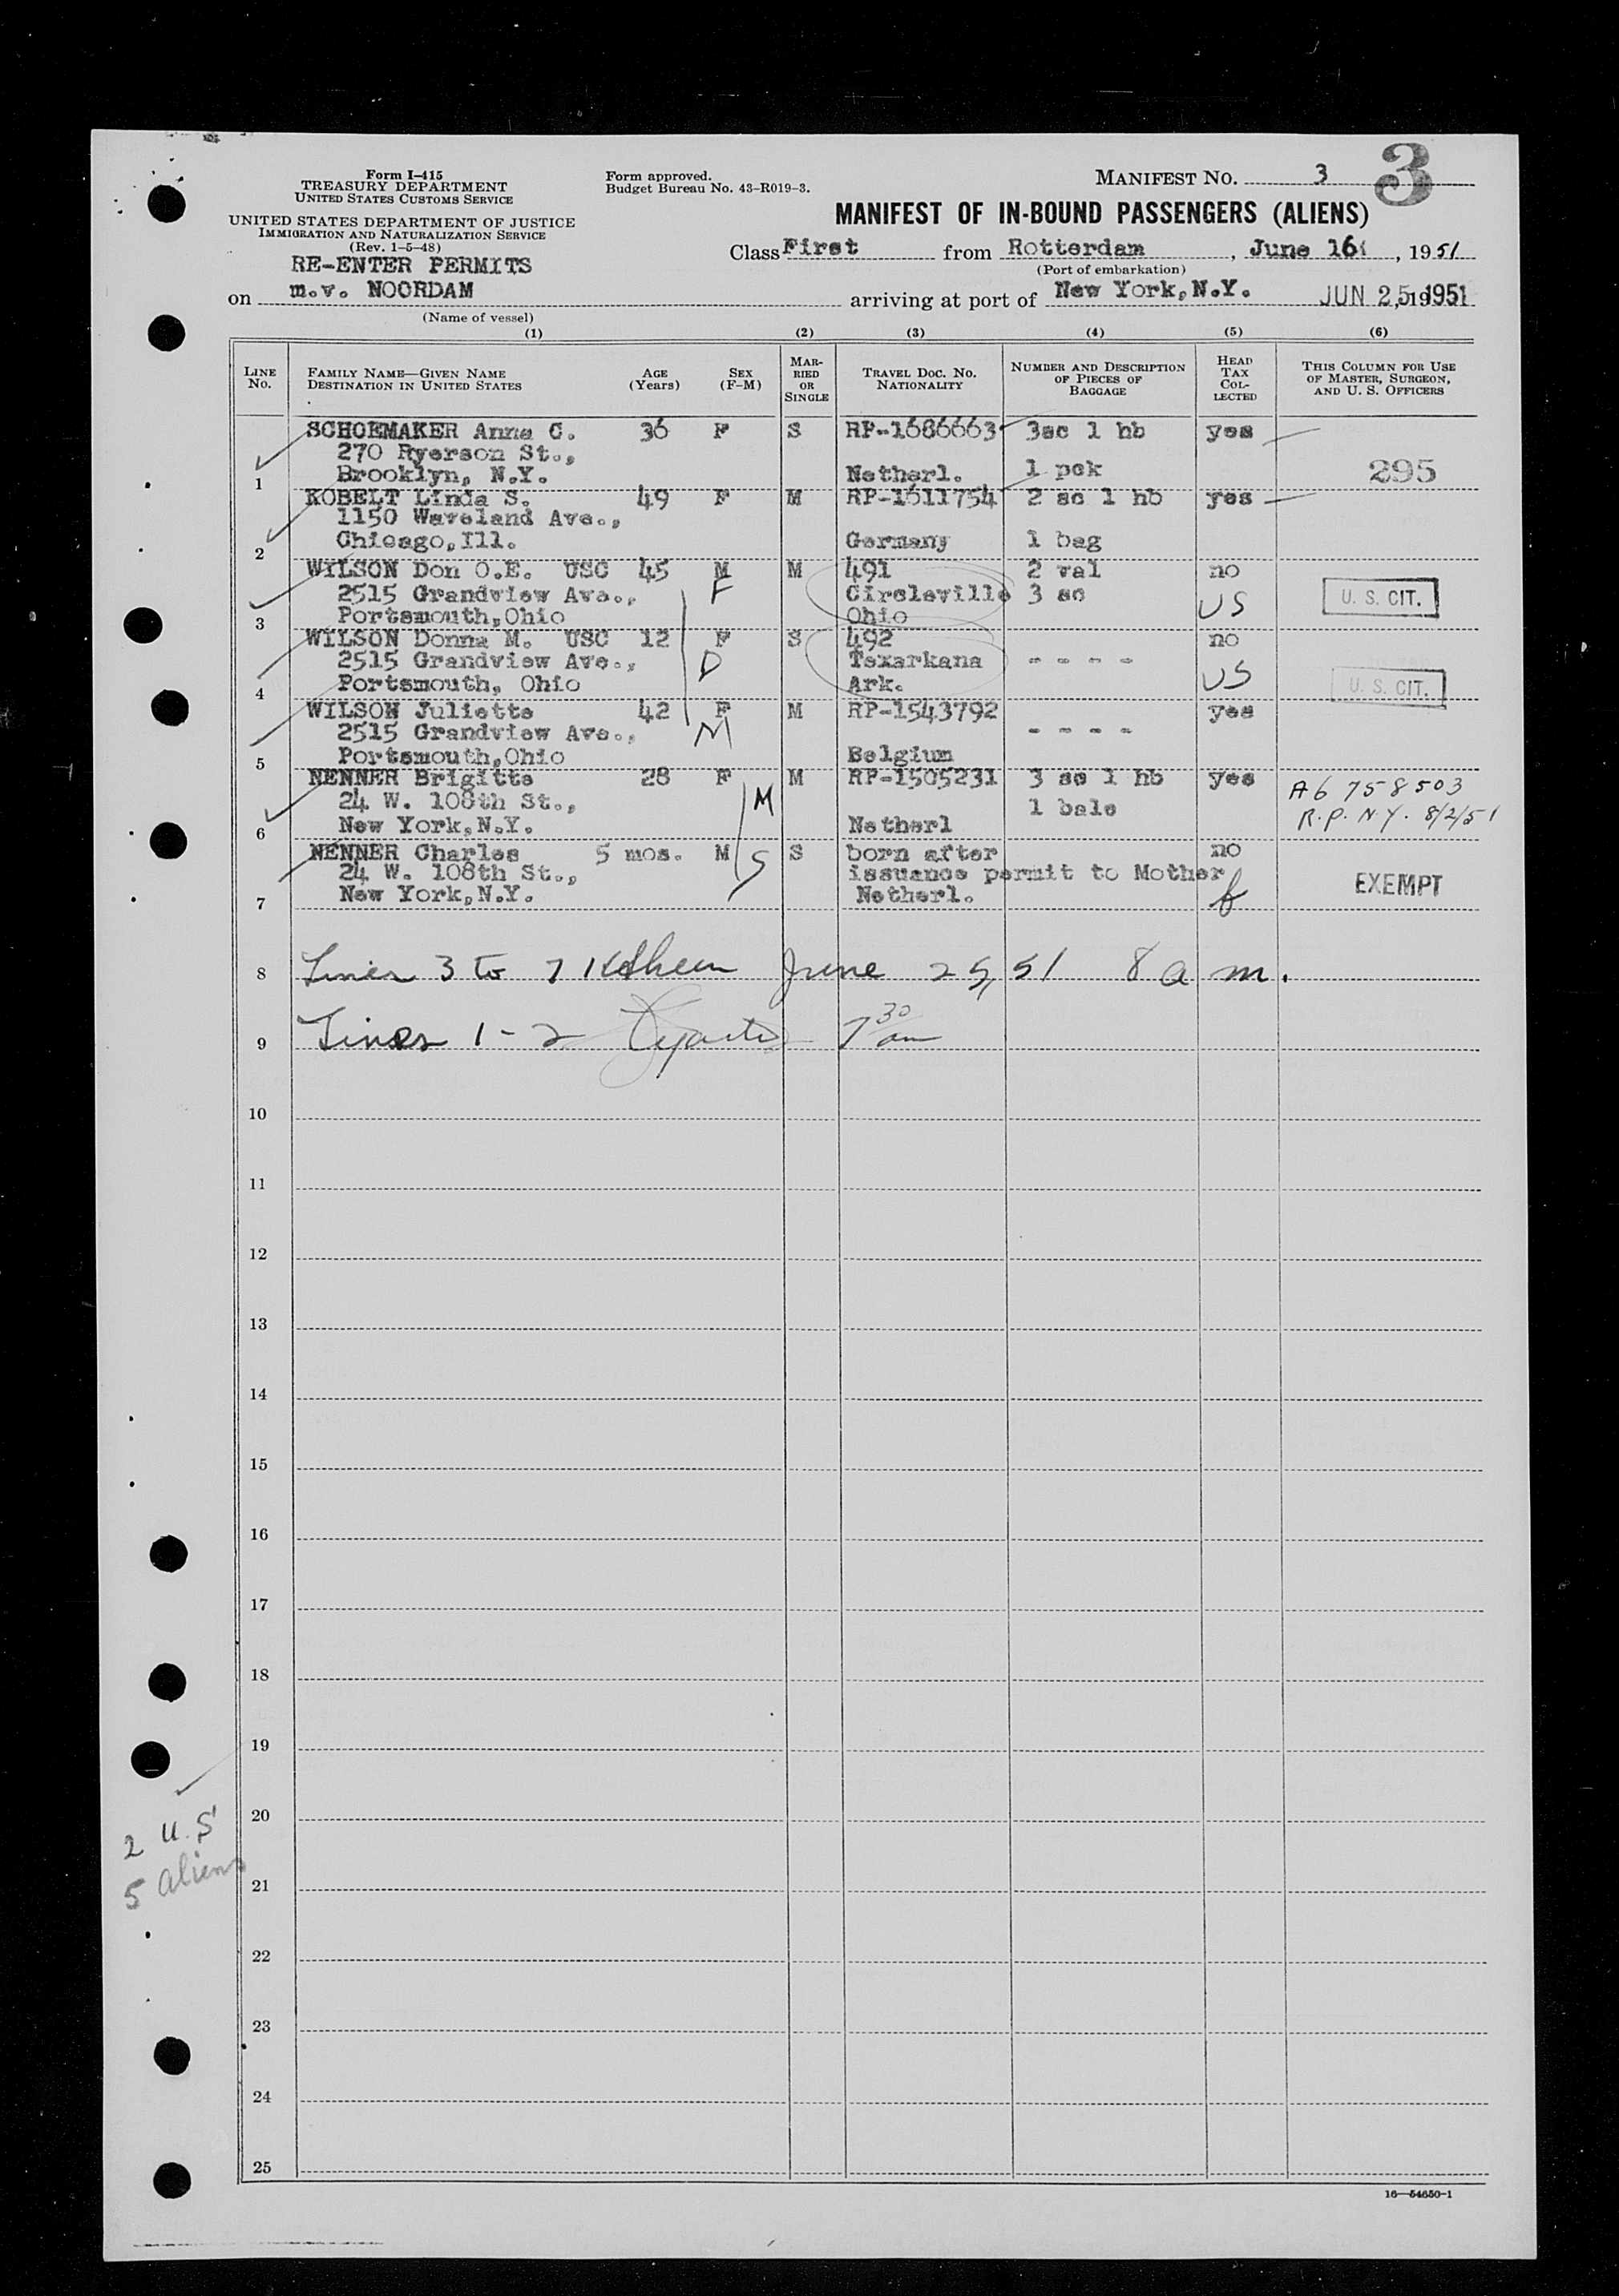 Form I-415
TREASURY DEPARTMENT
UNITED STATES CUSTOMS SERVICE
UNITED STATES DEPARTMENT OF JUSTICE
IMMIGRATION AND NATURALIZATION SERVICE
(Rev. 1-5-48)
RE-ENTER PERMITS
Form approved.
Budget Bureau No. 43-R019-3.
MANIFEST NO. 3 3
MANIFEST OF IN-BOUND PASSENGERS (ALIENS)
Class First from Rotterdam, June 16, 1951
(Port of embarkation)
on m.v. NOORDAM arriving at port of New York, N.Y. JUN 25 1951, 19
(Name of vessel)
(1) (2) (3) (4) (5) (6)
LINE No.
FAMILY NAME—GIVEN NAME
DESTINATION IN UNITED STATES
AGE (Years)
SEX (F-M)
MARRIED OR SINGLE
TRAVEL DOC. NO.
NATIONALITY
NUMBER AND DESCRIPTION OF PIECES OF BAGGAGE
HEAD TAX COLLECTED
THIS COLUMN FOR USE OF MASTER, SURGEON, AND U. S. OFFICERS
SCHOEMAKER Anna C. 36 F S RP-1686663 3sc 1 hb yes
270 Ryerson St.,
1 Brooklyn, N.Y. Netherl. 1 pck 295
KOBELT Linda S. 49 F M RP-1611754 2 sc 1 hb yes
1150 Waveland Ave.,
2 Chicago, Ill. Germany 1 bag
WILSON Don O.E. USC 45 M M 491 2 val no
2515 Grandview Ave., F Circleville 3 sc US U. S. CIT.
3 Portsmouth, Ohio Ohio
WILSON Donna M. USC 12 F S 492 no
2515 Grandview Ave., D Texarkana - - - - US
4 Portsmouth, Ohio Ark. U. S. CIT.
WILSON Juliette 42 F M RP-1543792 yes
2515 Grandview Ave., M - - - -
5 Portsmouth, Ohio Belgium
NENNER Brigitte 28 F M RP-1505231 3 sc 1 hb yes A6 758503
24 W. 108th St., M 1 bale R.P. N.Y. 8/2/51
6 New York, N.Y. Netherl
NENNER Charles 5 mos. M S born after no
24 W. 108th St., S issuance permit to Mother EXEMPT
7 New York, N.Y. Netherl.
8 Lines 3 to 7 June 25, 51 8 a m.
9 Lines 1-2 7 30 am
10
11
12
13
14
15
16
17
18
19
20
2 U.S
5 aliens
21
22
23
24
25
16—54650-1